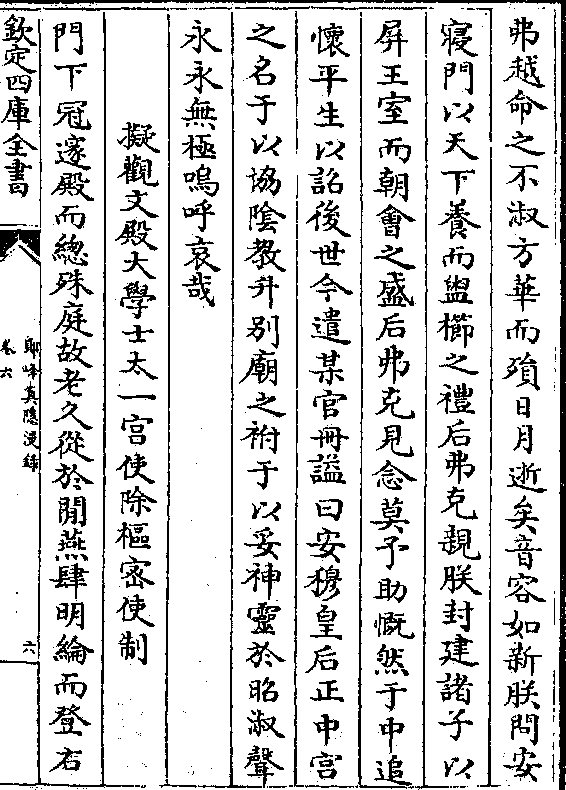 弗越命之不淑方華而殞日月逝矣音容如新朕問安
寢門以天下養而盥櫛之禮后弗克親朕封建諸子以
屏王室而朝會之盛后弗克見念莫予助慨然于中追
懷平生以詔後世今遣某官冊諡曰安穆皇后正中宮
之名于以協陰教升别廟之祔于以妥神靈於昭淑聲
永永無極嗚呼哀哉
擬觀文殿大學士太一宫使除樞密使制
門下冠邃殿而總殊庭故老久從於閒燕肆明綸而登右
欽定四庫全書
鄮峰真隱漫録
卷六
六